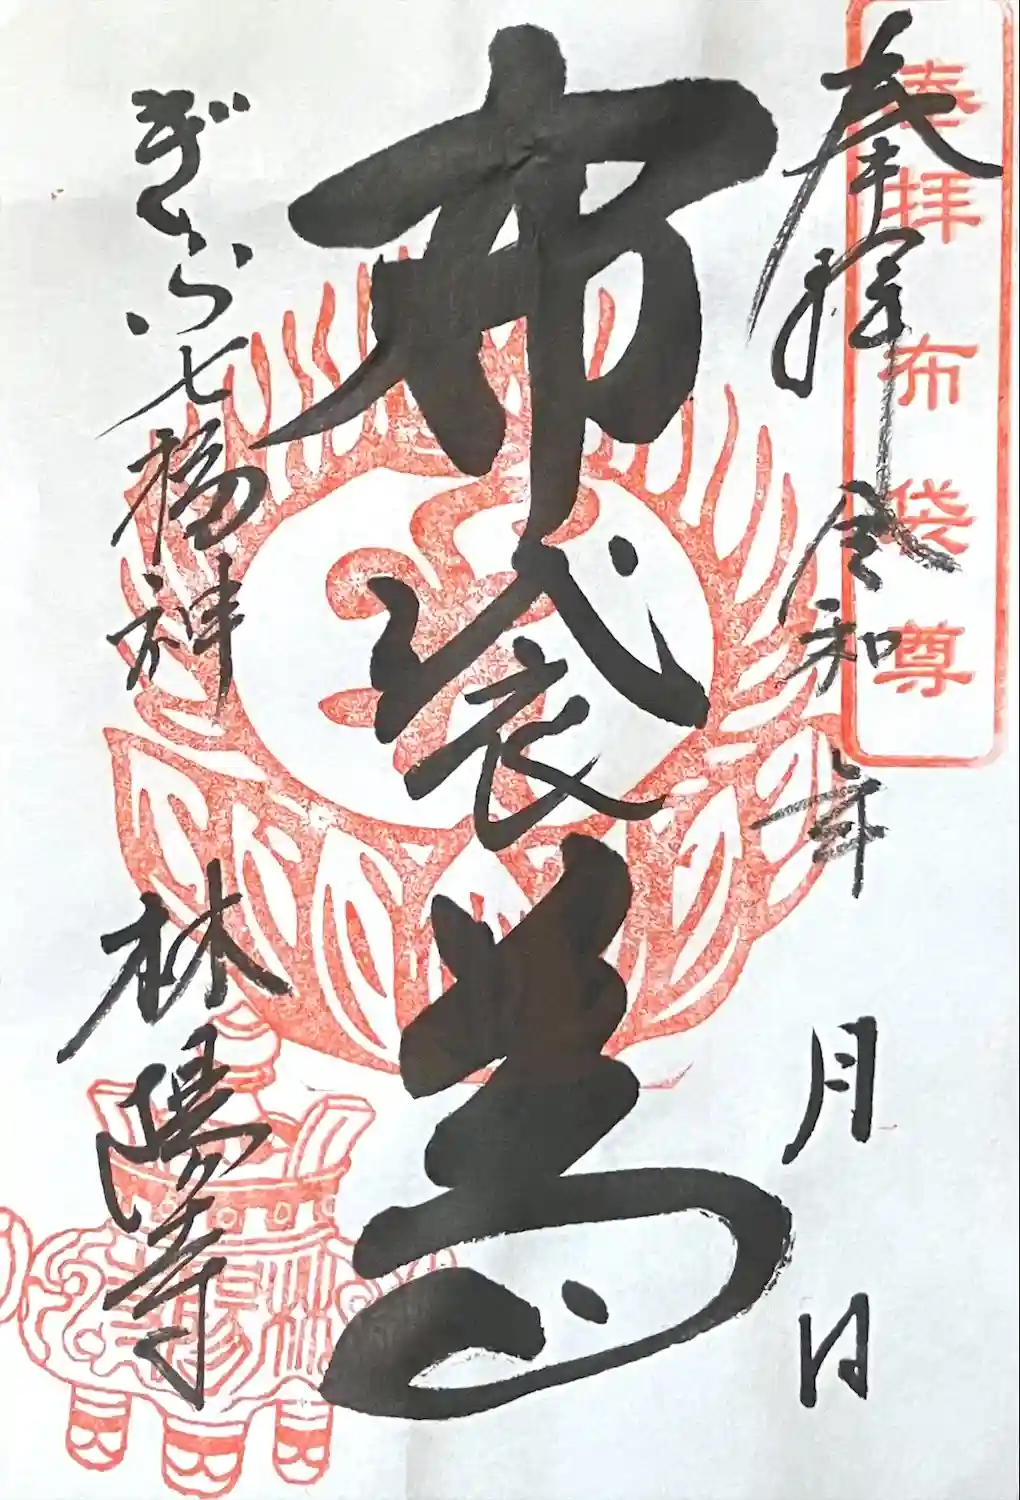 奉拝 布袋尊
奉拝 令和 年 月 日
布袋尊
ぎふ七福神 林陽寺
林陽寺